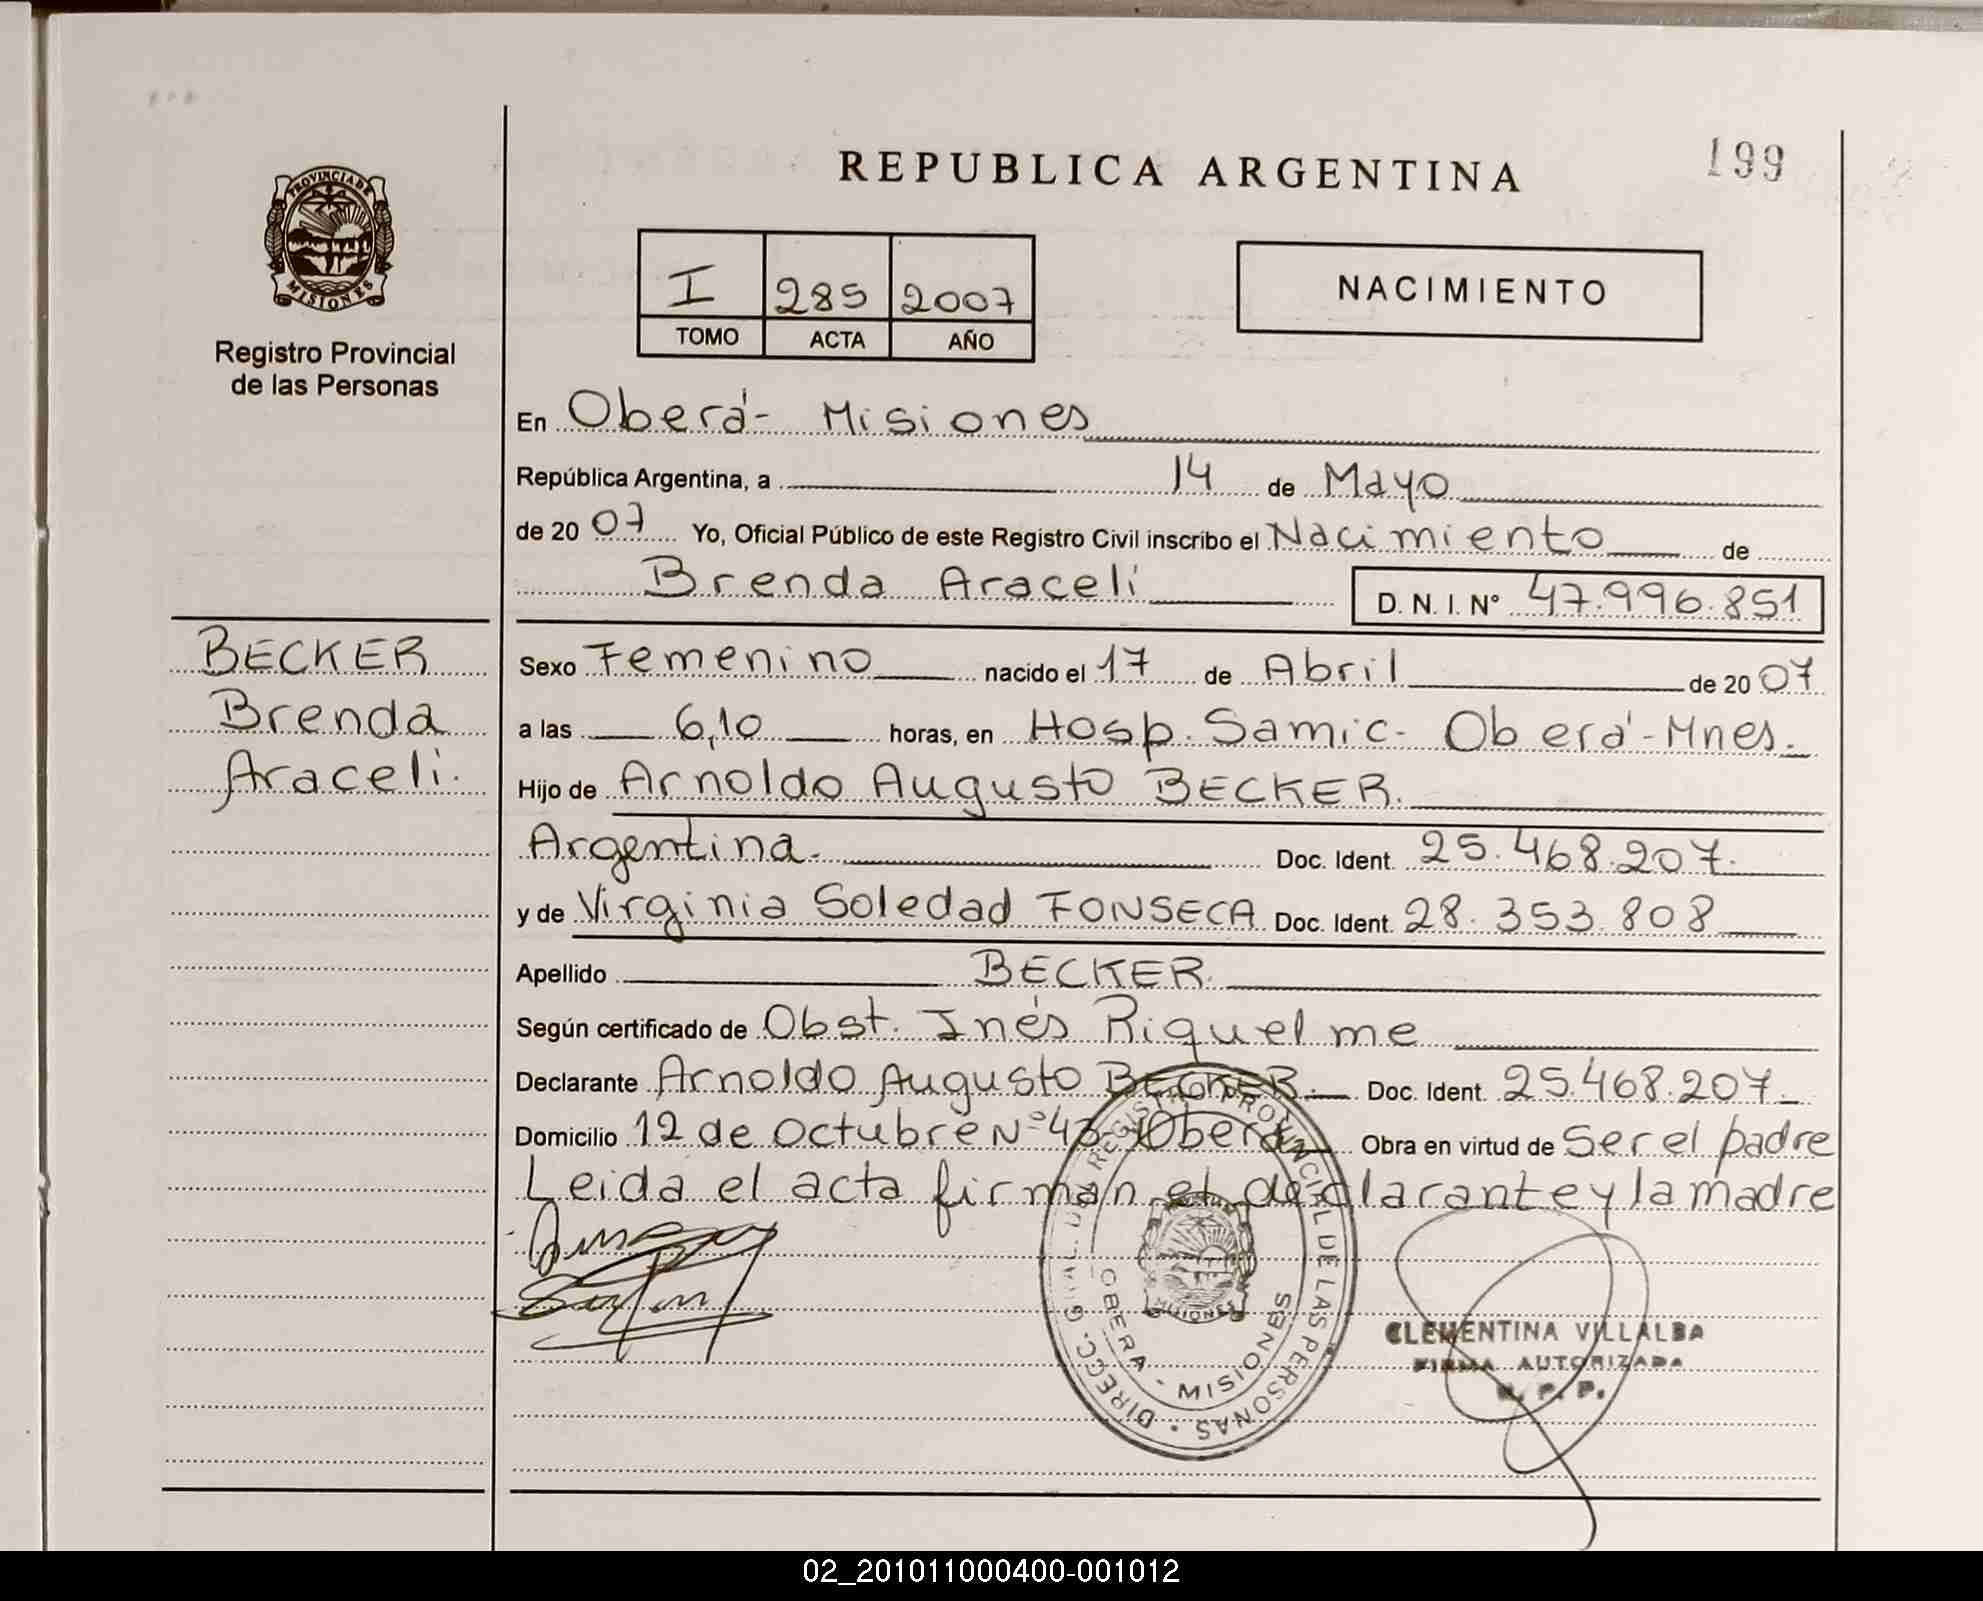 REPUBLICA ARGENTINA
199
PROVINCIA DE
MISIONES
Registro Provincial
de las Personas
I 285 2007
TOMO ACTA AÑO
NACIMIENTO
En Oberá - Misiones
República Argentina, a 14 de Mayo
de 20 07 Yo, Oficial Público de este Registro Civil inscribo el Nacimiento de
Brenda Araceli D. N. I. Nº 47.996.851
BECKER
Brenda
Araceli.
Sexo Femenino nacido el 17 de Abril de 20 07
a las 6,10 horas, en Hosp. Samic - Oberá - Mnes.
Hijo de Arnoldo Augusto BECKER.
Argentina. Doc. Ident. 25.468.207.
y de Virginia Soledad FONSECA Doc. Ident. 28.353.808
Apellido BECKER.
Según certificado de Obst. Inés Riquelme
Declarante Arnoldo Augusto BECKER. Doc. Ident. 25.468.207
Domicilio 12 de Octubre Nº 43 Oberá Obra en virtud de Ser el padre
Leida el acta firman el declarante y la madre
DIRECC. GRAL. DEL REGISTRO PROVINCIAL DE LAS PERSONAS
MISIONES
OBERA - MISIONES
CLEMENTINA VILLALBA
FIRMA AUTORIZADA
R. P. P.
02_201011000400-001012